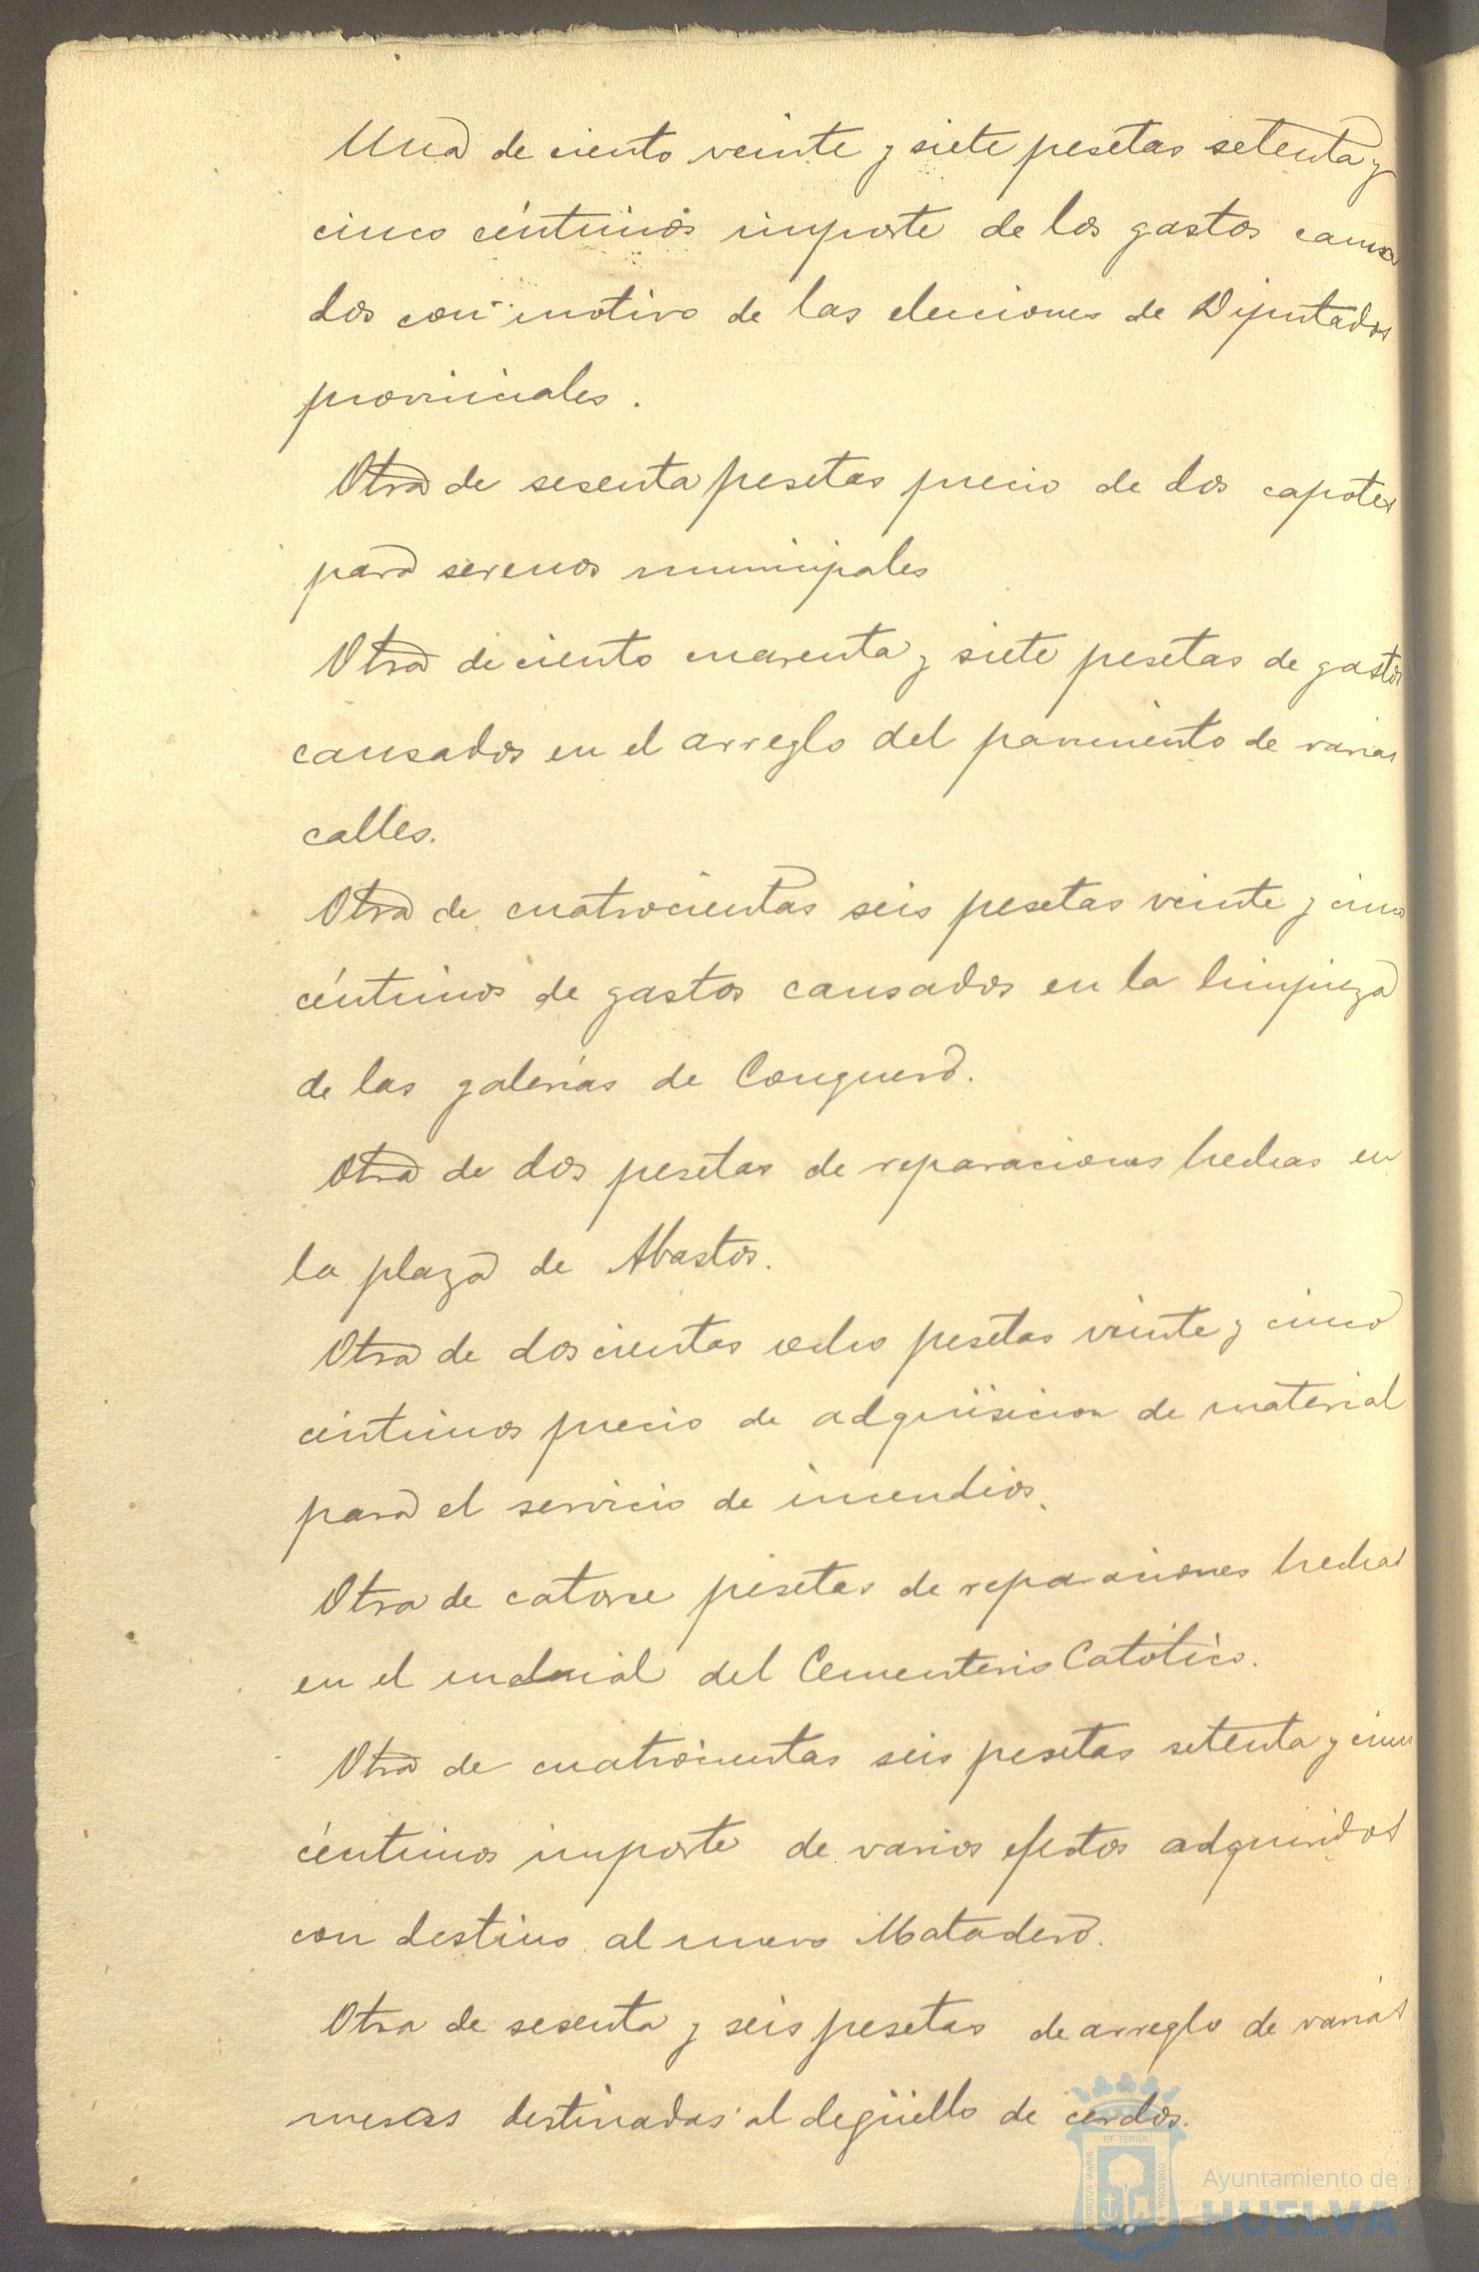 Una de ciento veinte y siete pesetas setenta y
cinco céntimos importe de los gastos causa
dos con motivo de las elecciones de Diputados
provinciales.
Otra de sesenta pesetas precio de dos capotes
para serenos municipales
Otra de ciento cuarenta y siete pesetas de gastos
causados en el arreglo del pavimento de varias
calles.
Otra de cuatrocientas seis pesetas veinte y cinco
céntimos de gastos causados en la limpieza
de las galerías de Conquero.
Otra de dos pesetas de reparaciones hechas en
la plaza de Abastos.
Otra de doscientas ocho pesetas veinte y cinco
céntimos precio de adquisicion de material
para el servicio de incendios.
Otra de catorce pesetas de reparaciones hechas
en el material del Cementerio Católico.
Otra de cuatrocientas seis pesetas setenta y cinco
céntimos importe de varios efectos adquiridos
con destino al nuevo Matadero.
Otra de sesenta y seis pesetas de arreglo de varias
mesas destinadas al degüello de cerdos.
ET TERRA
PORTUS MARIS
CUSTODIA
Ayuntamiento de
HUELVA